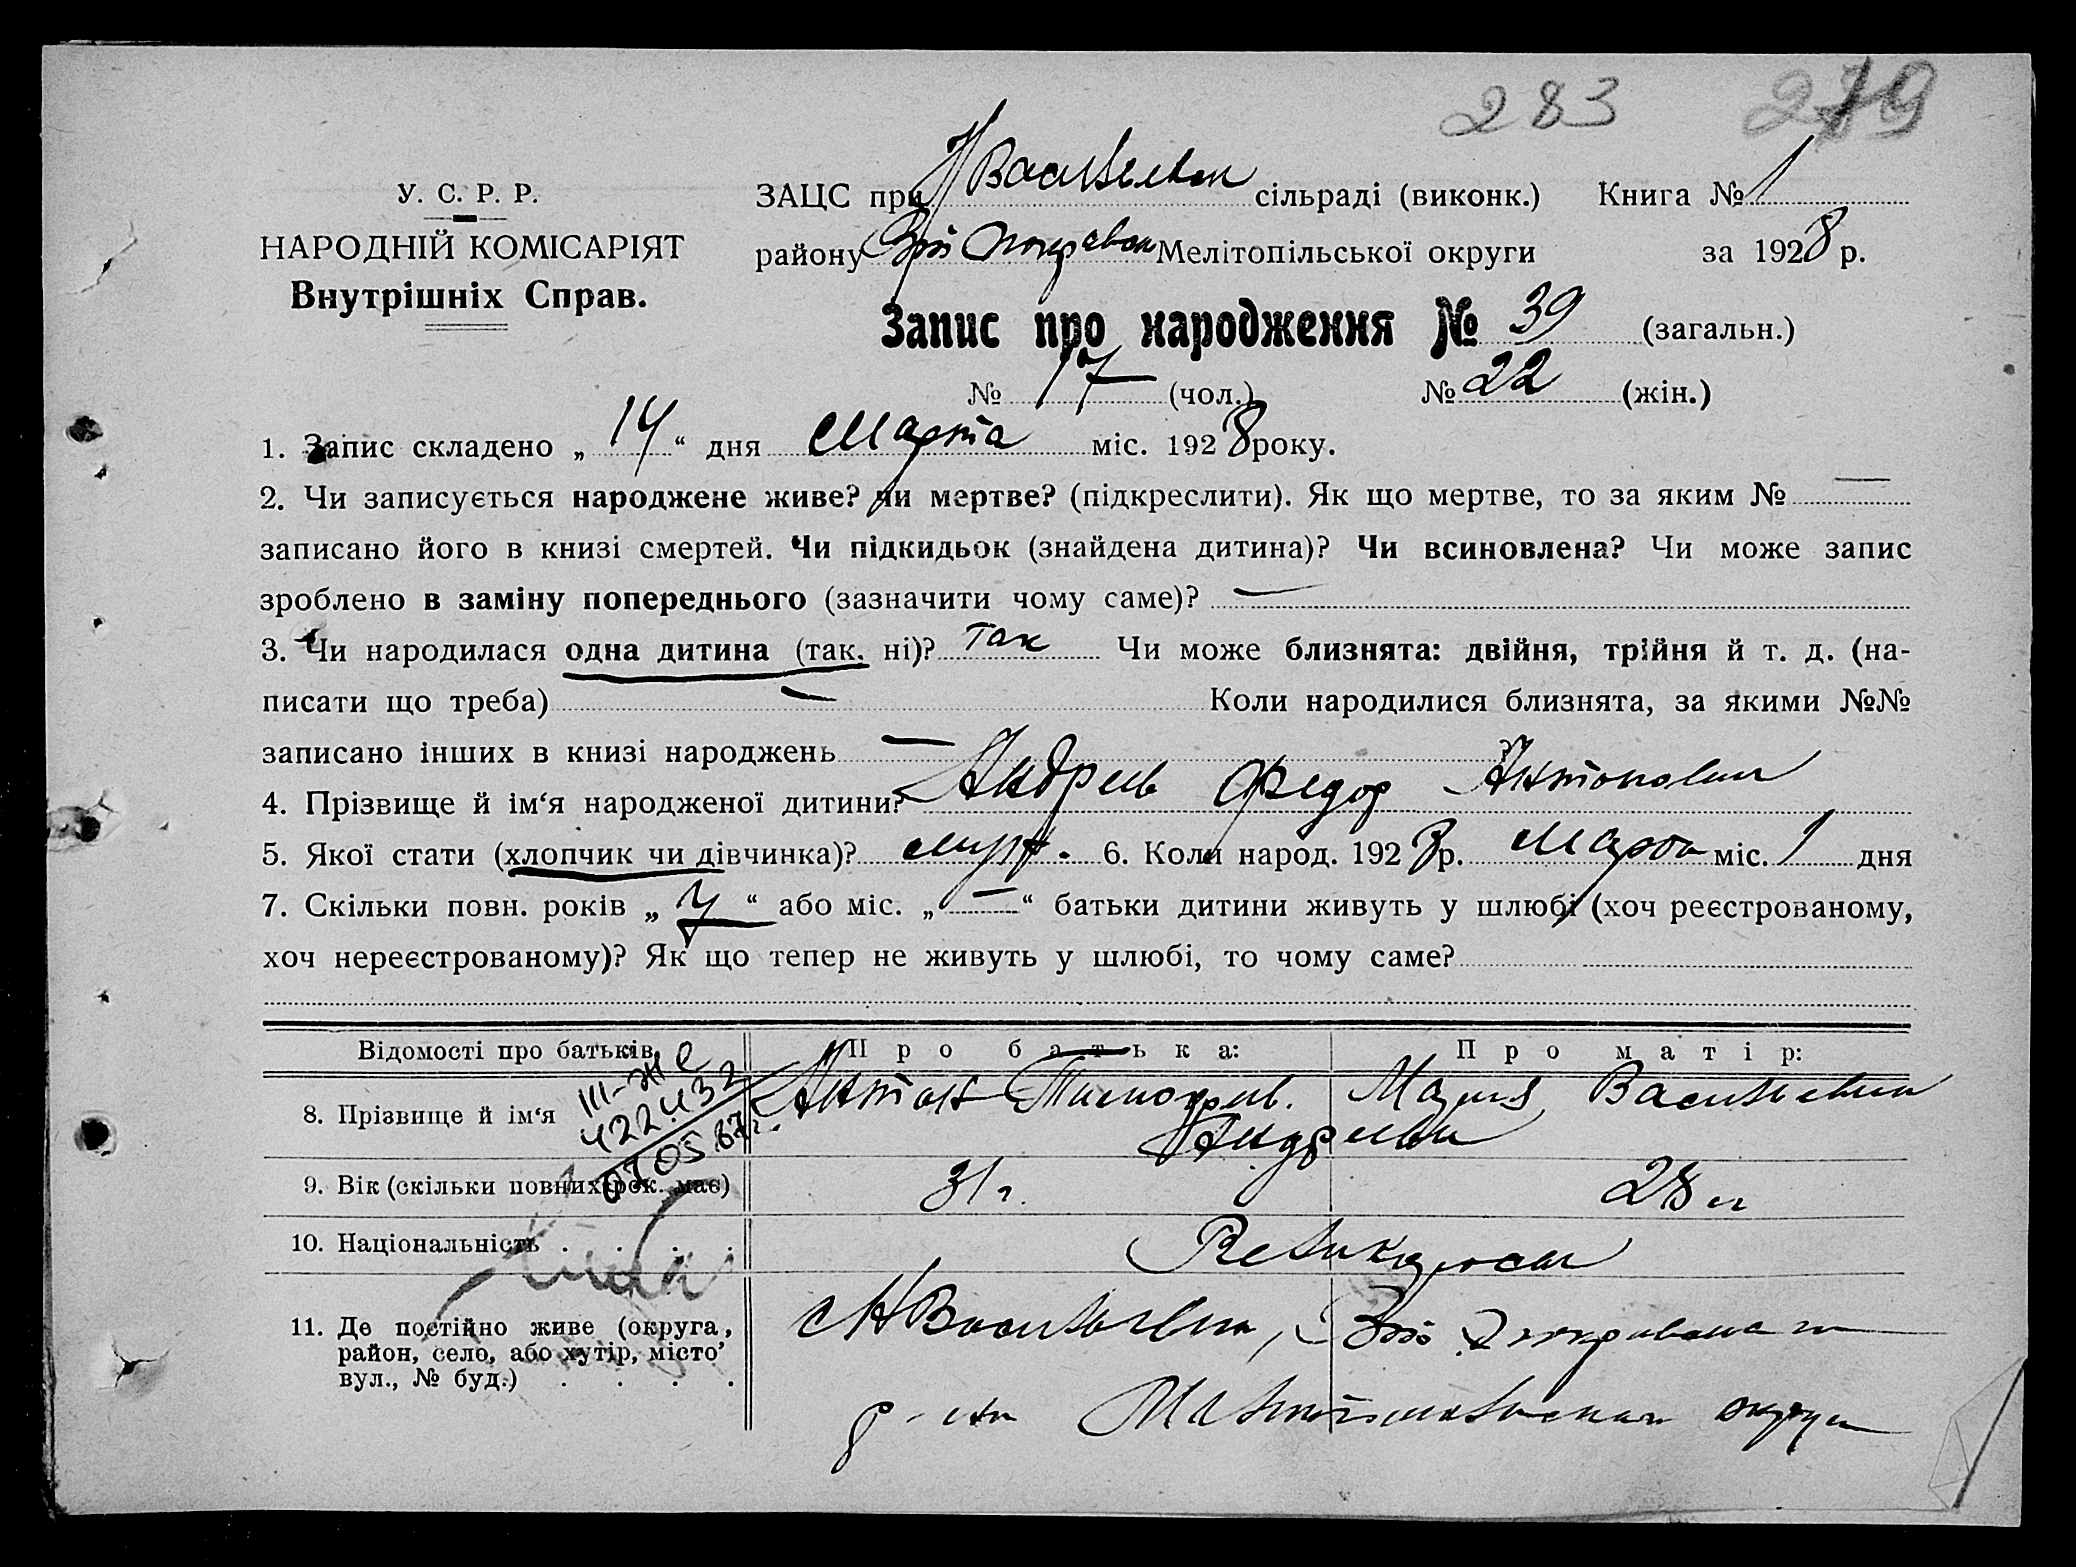 283 279
У. С. Р. Р.
НАРОДНІЙ КОМІСАРІЯТ
Внутрішніх Справ.
ЗАЦС при Н Васильевск сільраді (виконк.) Книга № 1
району Мелітопільської округи за 1928 р.
Запис про народження № 39 (загальн.)
№ 17 (чол.) № 22 (жін.)
1. Запис складено „ 14 “ дня Марта міс. 1928 року.
2. Чи записується народжене живе? чи мертве? (підкреслити). Як що мертве, то за яким № —
записано його в книзі смертей. Чи підкидьок (знайдена дитина)? Чи всиновлена? Чи може запис
зроблено в заміну попереднього (зазначити чому саме)? —
3. Чи народилася одна дитина (так, ні)? Так Чи може близнята: двійня, трійня й т. д. (на-
писати що треба) — Коли народилися близнята, за якими №№
записано інших в книзі народжень —
4. Прізвище й ім‘я народженої дитини? Андреев Федор Антонович
5. Якої стати (хлопчик чи дівчинка)? муж. 6. Коли народ. 1928 р. Марта міс. 1 дня
7. Скільки повн. років „ “ або міс. „ — “ батьки дитини живуть у шлюбі (хоч реєстрованому,
хоч нереєстрованому)? Як що тепер не живуть у шлюбі, то чому саме?
Відомості про батьків Про батька: Про матір:
III-ЖС
422432
8. Прізвище й ім‘я Антон Тимофеев. Мария Васильевна
Андреевы
9. Вік (скільки повних рок. має) 31 г. 28 л
10. Національність . . . . Великоросы
11. Де постійно живе (округа, район, село, або хутір, місто, вул., № буд.) . . . . с Н Васильевка,
р-на Мелитопольской округи